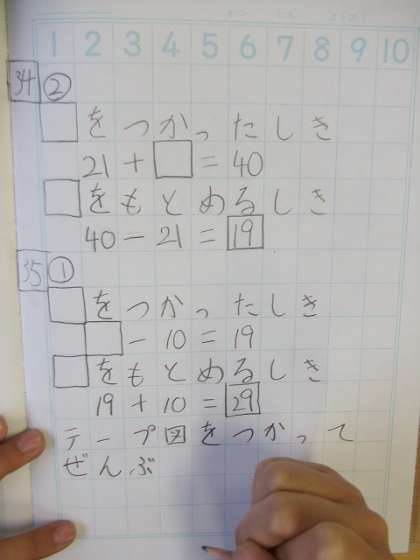 1 2 3 4 5 6 7 8 9 10
34 ②
□をつかったしき
21+□=40
□をもとめるしき
40-21=19
35 ①
□をつかったしき
□-10=19
□をもとめるしき
19+10=29
テープ図をつかって
ぜんぶ